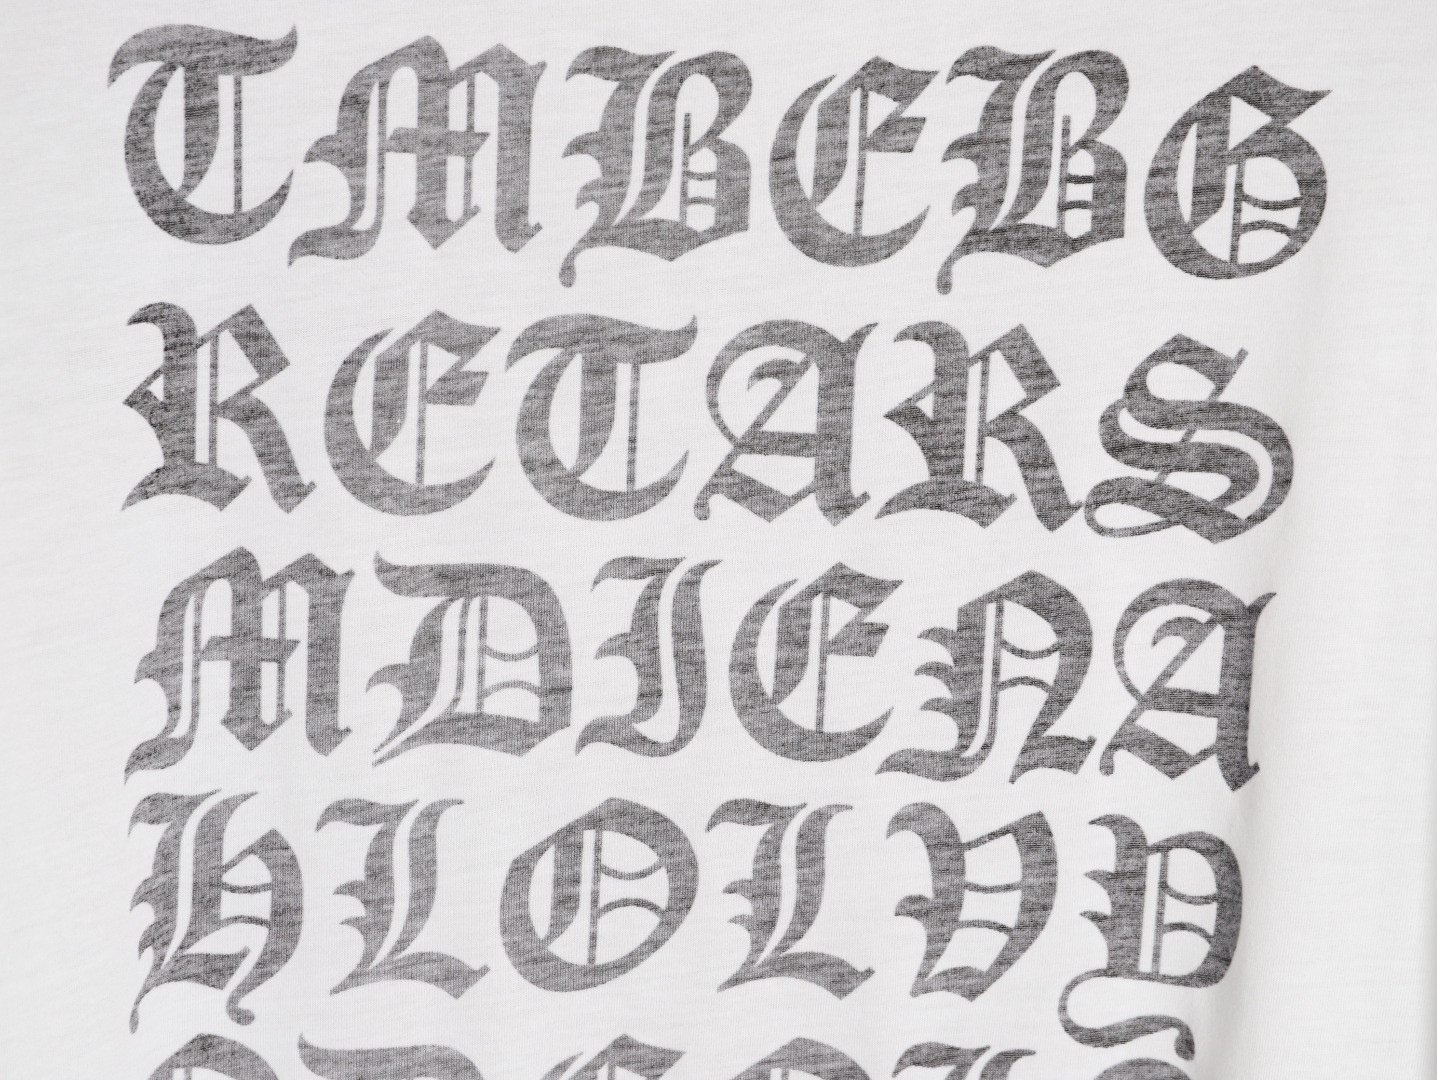 TMBEBG
RETARS
MDIENA
HLOLVY